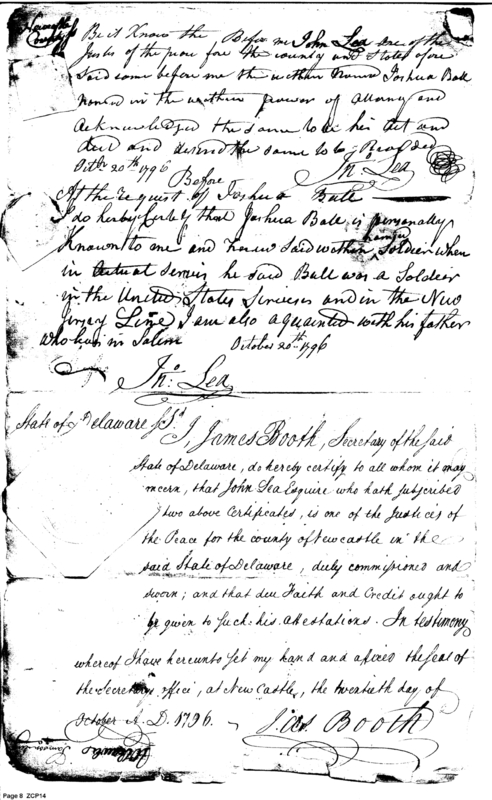 Newcastle
County Ss
Be it Know tha Before me John Lea one of the
Justes of the peace fore the county and State afore
Said came before me the within Named Joshua Ball
named in the within power of Attorney and
Acknowledged the same to be his Act and
deed and desired the same to be Recorded
Octbr 20th 1796
Before Jno Lea
At the request of Joshua Ball
I do herby Certefy that Joshua Ball is personally
Known to me and he was said within named Soldier when
in Actual Servis he said Ball was a Soldier
in the United States Servises and in the New
Jersey Line I am also aquainted with his father
who lives in Salem October 20th 1796
Jno Lea
State of Delaware Ss.
I, James Booth, Secretary of the said
State of Delaware, do hereby certify to all whom it may
concern, that John Lea Esquire who hath subscribed
two above Certificates, is one of the Justices of
the Peace for the county of Newcastle in the
said State of Delaware, duly commissioned and
sworn; and that due Faith and Credit ought to
be given to such his Attestations. In testimony
whereof I have hereunto set my hand and afixed the seal of
the Secretarys office, at New Castle, the twentieth day of
October A. D. 1796.
Jas Booth
Page 8 ZCP14